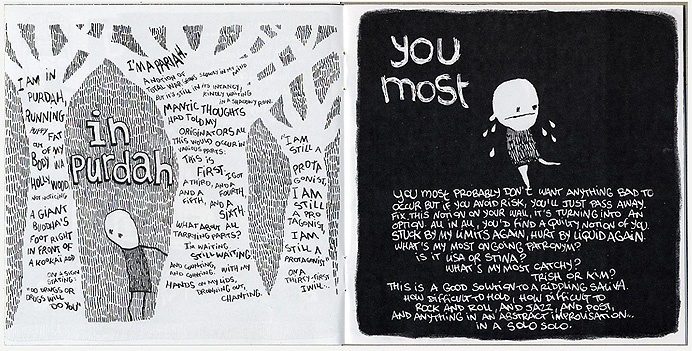 I AM IN
PURDAH,
RUNNING
PUPPY FAT
OFF MY
BODY VIA
HOLLYWOOD.
NOT NOTICING
A GIANT
BUDDHA'S
FOOT RIGHT
IN FRONT OF
A KOOKAI AD
ON A SIGN
STATING:
"DO DRUGS OR
DRUGS WILL
DO YOU"
in
Purdah
I'M A PARIAH.
A NOTION OF
TOTAL WEAR GROWS SLOWLY IN MY
BUT IT'S STILL IN ITS INFANCY,
KINDLY WAITING
IN A SHADOWY ROOM.
MANTIC THOUGHTS
HAD TOLD MY
ORIGINATORS ALL
THIS WOULD OCCUR IN
VARIOUS PARTS:
THIS IS
FIRST, I GOT
A THIRD, AND A
AND A FOURTH,
FIFTH, AND A
SIXTH
WHAT ABOUT ALL
TARRYING PARTS?
I'M WAITING,
STILL WAITING
AND COUGHING,
AND COUGHING, WITH MY
HANDS ON MY LIDS,
DROWNING OUT,
CHANTING.
"I AM
STILL A
PROTA
GONIST,
I AM
STILL
A PRO
TAGONIST,
I AM
STILL A
PROTAGONIST"
ON A
THIRTY-FIRST
I WILL...
you
most
YOU MOST PROBABLY DON'T WANT ANYTHING BAD TO
OCCUR BUT IF YOU AVOID RISK, YOU'LL JUST PASS AWAY.
FIX THIS NOTION ON YOUR WALL, IT'S TURNING INTO AN
OPTION. ALL IN ALL, YOU'D FIND A GUILTY NOTION OF YOU.
STUCK BY MY LIMITS AGAIN, HURT BY LIQUID AGAIN.
WHAT'S MY MOST ONGOING PATRONYM?
IS IT USA OR STINA?
WHAT'S MY MOST CATCHY?
TRISH OR KIM?
THIS IS A GOOD SOLUTION TO A RIDDLING SALIVA.
HOW DIFFICULT TO HOLD, HOW DIFFICULT TO
ROCK AND ROLL, AND JAZZ, AND POST,
AND ANYTHING IN AN ABSTRACT IMPROVISATION...
IN A SOLO SOLO.